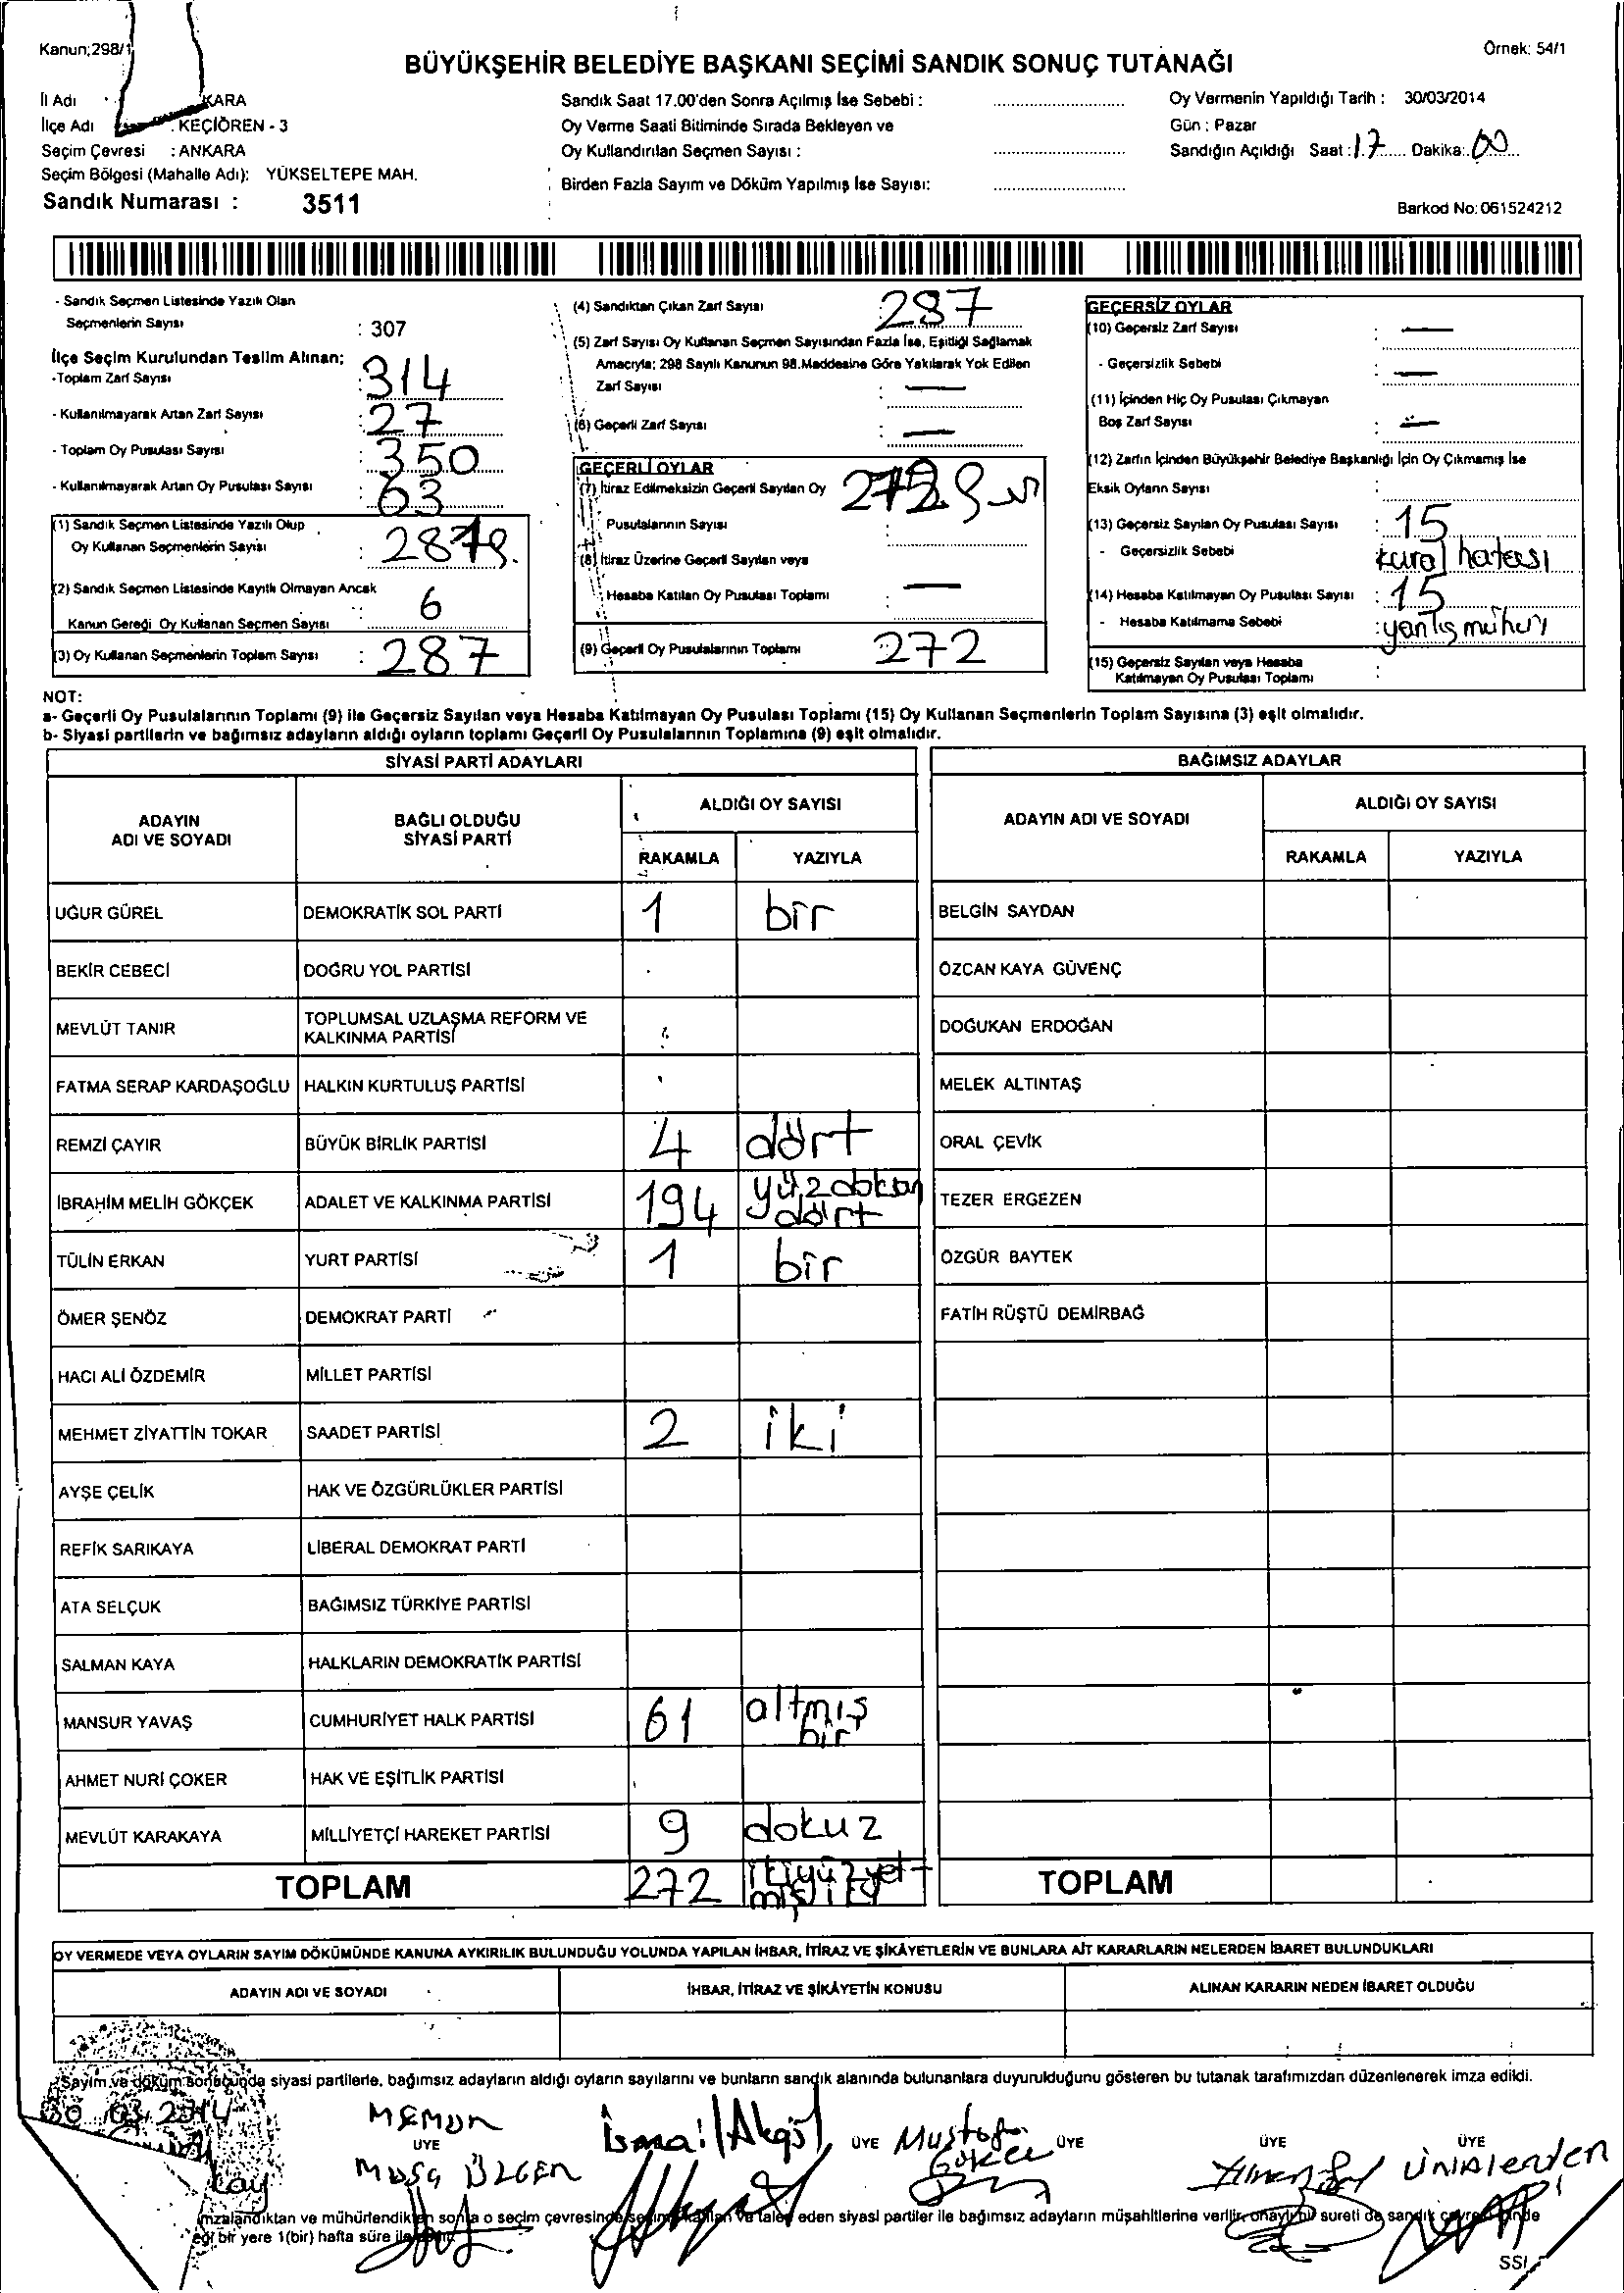 Kanun;298/1
Örnek: 54/1
BÜYÜKŞEHİR BELEDİYE BAŞKANI SEÇİMİ SANDIK SONUÇ TUTANAĞI
İl Adı KARA
İlçe Adı : KEÇİÖREN - 3
Seçim Çevresi : ANKARA
Seçim Bölgesi (Mahalle Adı): YÜKSELTEPE MAH.
Sandık Numarası : 3511
Sandık Saat 17.00'den Sonra Açılmış İse Sebebi :
Oy Verme Saati Bitiminde Sırada Bekleyen ve
Oy Kullandırılan Seçmen Sayısı :
Birden Fazla Sayım ve Döküm Yapılmış İse Sayısı:
Oy Vermenin Yapıldığı Tarih : 30/03/2014
Gün : Pazar
Sandığın Açıldığı Saat : 17 Dakika: 00
Barkod No: 061524212
- Sandık Seçmen Listesinde Yazılı Olan
Seçmenlerin Sayısı : 307
İlçe Seçim Kurulundan Teslim Alınan;
-Toplam Zarf Sayısı : 314
- Kullanılmayarak Artan Zarf Sayısı : 27
- Toplam Oy Pusulası Sayısı : 350
- Kullanılmayarak Artan Oy Pusulası Sayısı : 63
(1) Sandık Seçmen Listesinde Yazılı Olup
Oy Kullanan Seçmenlerin Sayısı :
(2) Sandık Seçmen Listesinde Kayıtlı Olmayan Ancak
Kanun Gereği Oy Kullanan Seçmen Sayısı : 6
(3) Oy Kullanan Seçmenlerin Toplam Sayısı : 287
(4) Sandıktan Çıkan Zarf Sayısı 287
(5) Zarf Sayısı Oy Kullanan Seçmen Sayısından Fazla İse, Eşitliği Sağlamak
Amacıyla; 298 Sayılı Kanunun 98.Maddesine Göre Yakılarak Yok Edilen
Zarf Sayısı : —
(6) Geçerli Zarf Sayısı : —
GEÇERLİ OYLAR
(7) İtiraz Edilmeksizin Geçerli Sayılan Oy
Pusulalarının Sayısı :
(8) İtiraz Üzerine Geçerli Sayılan veya
Hesaba Katılan Oy Pusulası Toplamı : —
(9) Geçerli Oy Pusulalarının Toplamı 272
GEÇERSİZ OYLAR
(10) Geçersiz Zarf Sayısı : —
- Geçersizlik Sebebi : —
(11) İçinden Hiç Oy Pusulası Çıkmayan
Boş Zarf Sayısı : —
(12) Zarfın İçinden Büyükşehir Belediye Başkanlığı İçin Oy Çıkmamış İse
Eksik Oyların Sayısı :
(13) Geçersiz Sayılan Oy Pusulası Sayısı : 15
- Geçersizlik Sebebi kural hatası
(14) Hesaba Katılmayan Oy Pusulası Sayısı : 15
- Hesaba Katılmama Sebebi : yanlış mühür
(15) Geçersiz Sayılan veya Hesaba
Katılmayan Oy Pusulası Toplamı :
NOT:
a- Geçerli Oy Pusulalarının Toplamı (9) ile Geçersiz Sayılan veya Hesaba Katılmayan Oy Pusulası Toplamı (15) Oy Kullanan Seçmenlerin Toplam Sayısına (3) eşit olmalıdır.
b- Siyasi partilerin ve bağımsız adayların aldığı oyların toplamı Geçerli Oy Pusulalarının Toplamına (9) eşit olmalıdır.
SİYASİ PARTİ ADAYLARI
ADAYIN ADI VE SOYADI
BAĞLI OLDUĞU SİYASİ PARTİ
ALDIĞI OY SAYISI
RAKAMLA YAZIYLA
UĞUR GÜREL DEMOKRATİK SOL PARTİ 1 bir
BEKİR CEBECİ DOĞRU YOL PARTİSİ
MEVLÜT TANIR TOPLUMSAL UZLAŞMA REFORM VE
KALKINMA PARTİSİ
FATMA SERAP KARDAŞOĞLU HALKIN KURTULUŞ PARTİSİ
REMZİ ÇAYIR BÜYÜK BİRLİK PARTİSİ 4 dört
İBRAHİM MELİH GÖKÇEK ADALET VE KALKINMA PARTİSİ 194 yüzdoksan
dört
TÜLİN ERKAN YURT PARTİSİ 1 bir
ÖMER ŞENÖZ DEMOKRAT PARTİ
HACI ALİ ÖZDEMİR MİLLET PARTİSİ
MEHMET ZİYATTİN TOKAR SAADET PARTİSİ 2 iki
AYŞE ÇELİK HAK VE ÖZGÜRLÜKLER PARTİSİ
REFİK SARIKAYA LİBERAL DEMOKRAT PARTİ
ATA SELÇUK BAĞIMSIZ TÜRKİYE PARTİSİ
SALMAN KAYA HALKLARIN DEMOKRATİK PARTİSİ
MANSUR YAVAŞ CUMHURİYET HALK PARTİSİ 61 altmış
bir
AHMET NURİ ÇOKER HAK VE EŞİTLİK PARTİSİ
MEVLÜT KARAKAYA MİLLİYETÇİ HAREKET PARTİSİ 9 dokuz
TOPLAM 272 ikiyüzyet-
miş iki
BAĞIMSIZ ADAYLAR
ADAYIN ADI VE SOYADI
ALDIĞI OY SAYISI
RAKAMLA YAZIYLA
BELGİN SAYDAN
ÖZCAN KAYA GÜVENÇ
DOĞUKAN ERDOĞAN
MELEK ALTINTAŞ
ORAL ÇEVİK
TEZER ERGEZEN
ÖZGÜR BAYTEK
FATİH RÜŞTÜ DEMİRBAĞ
TOPLAM
OY VERMEDE VEYA OYLARIN SAYIM DÖKÜMÜNDE KANUNA AYKIRILIK BULUNDUĞU YOLUNDA YAPILAN İHBAR, İTİRAZ VE ŞİKÂYETLERİN VE BUNLARA AİT KARARLARIN NELERDEN İBARET BULUNDUKLARI
ADAYIN ADI VE SOYADI İHBAR, İTİRAZ VE ŞİKÂYETİN KONUSU ALINAN KARARIN NEDEN İBARET OLDUĞU
Sayım ve döküm sonucunda siyasi partilerle, bağımsız adayların aldığı oyların sayılarını ve bunların sandık alanında bulunanlara duyurulduğunu gösteren bu tutanak tarafımızdan düzenlenerek imza edildi.
30.03.2014
MEMUR
ÜYE
MUSA ÖZGEN
İsmail Akgül
ÜYE Mustafa
Gökçe
ÜYE
ÜYE
ÜYE
imzalandıktan ve mühürlendikten sonra o seçim çevresinde seçime katılan ve talep eden siyasi partiler ile bağımsız adayların müşahitlerine verilir, onaylı bir sureti de sandık çevresinde
bir yere 1(bir) hafta süre ile
SSI